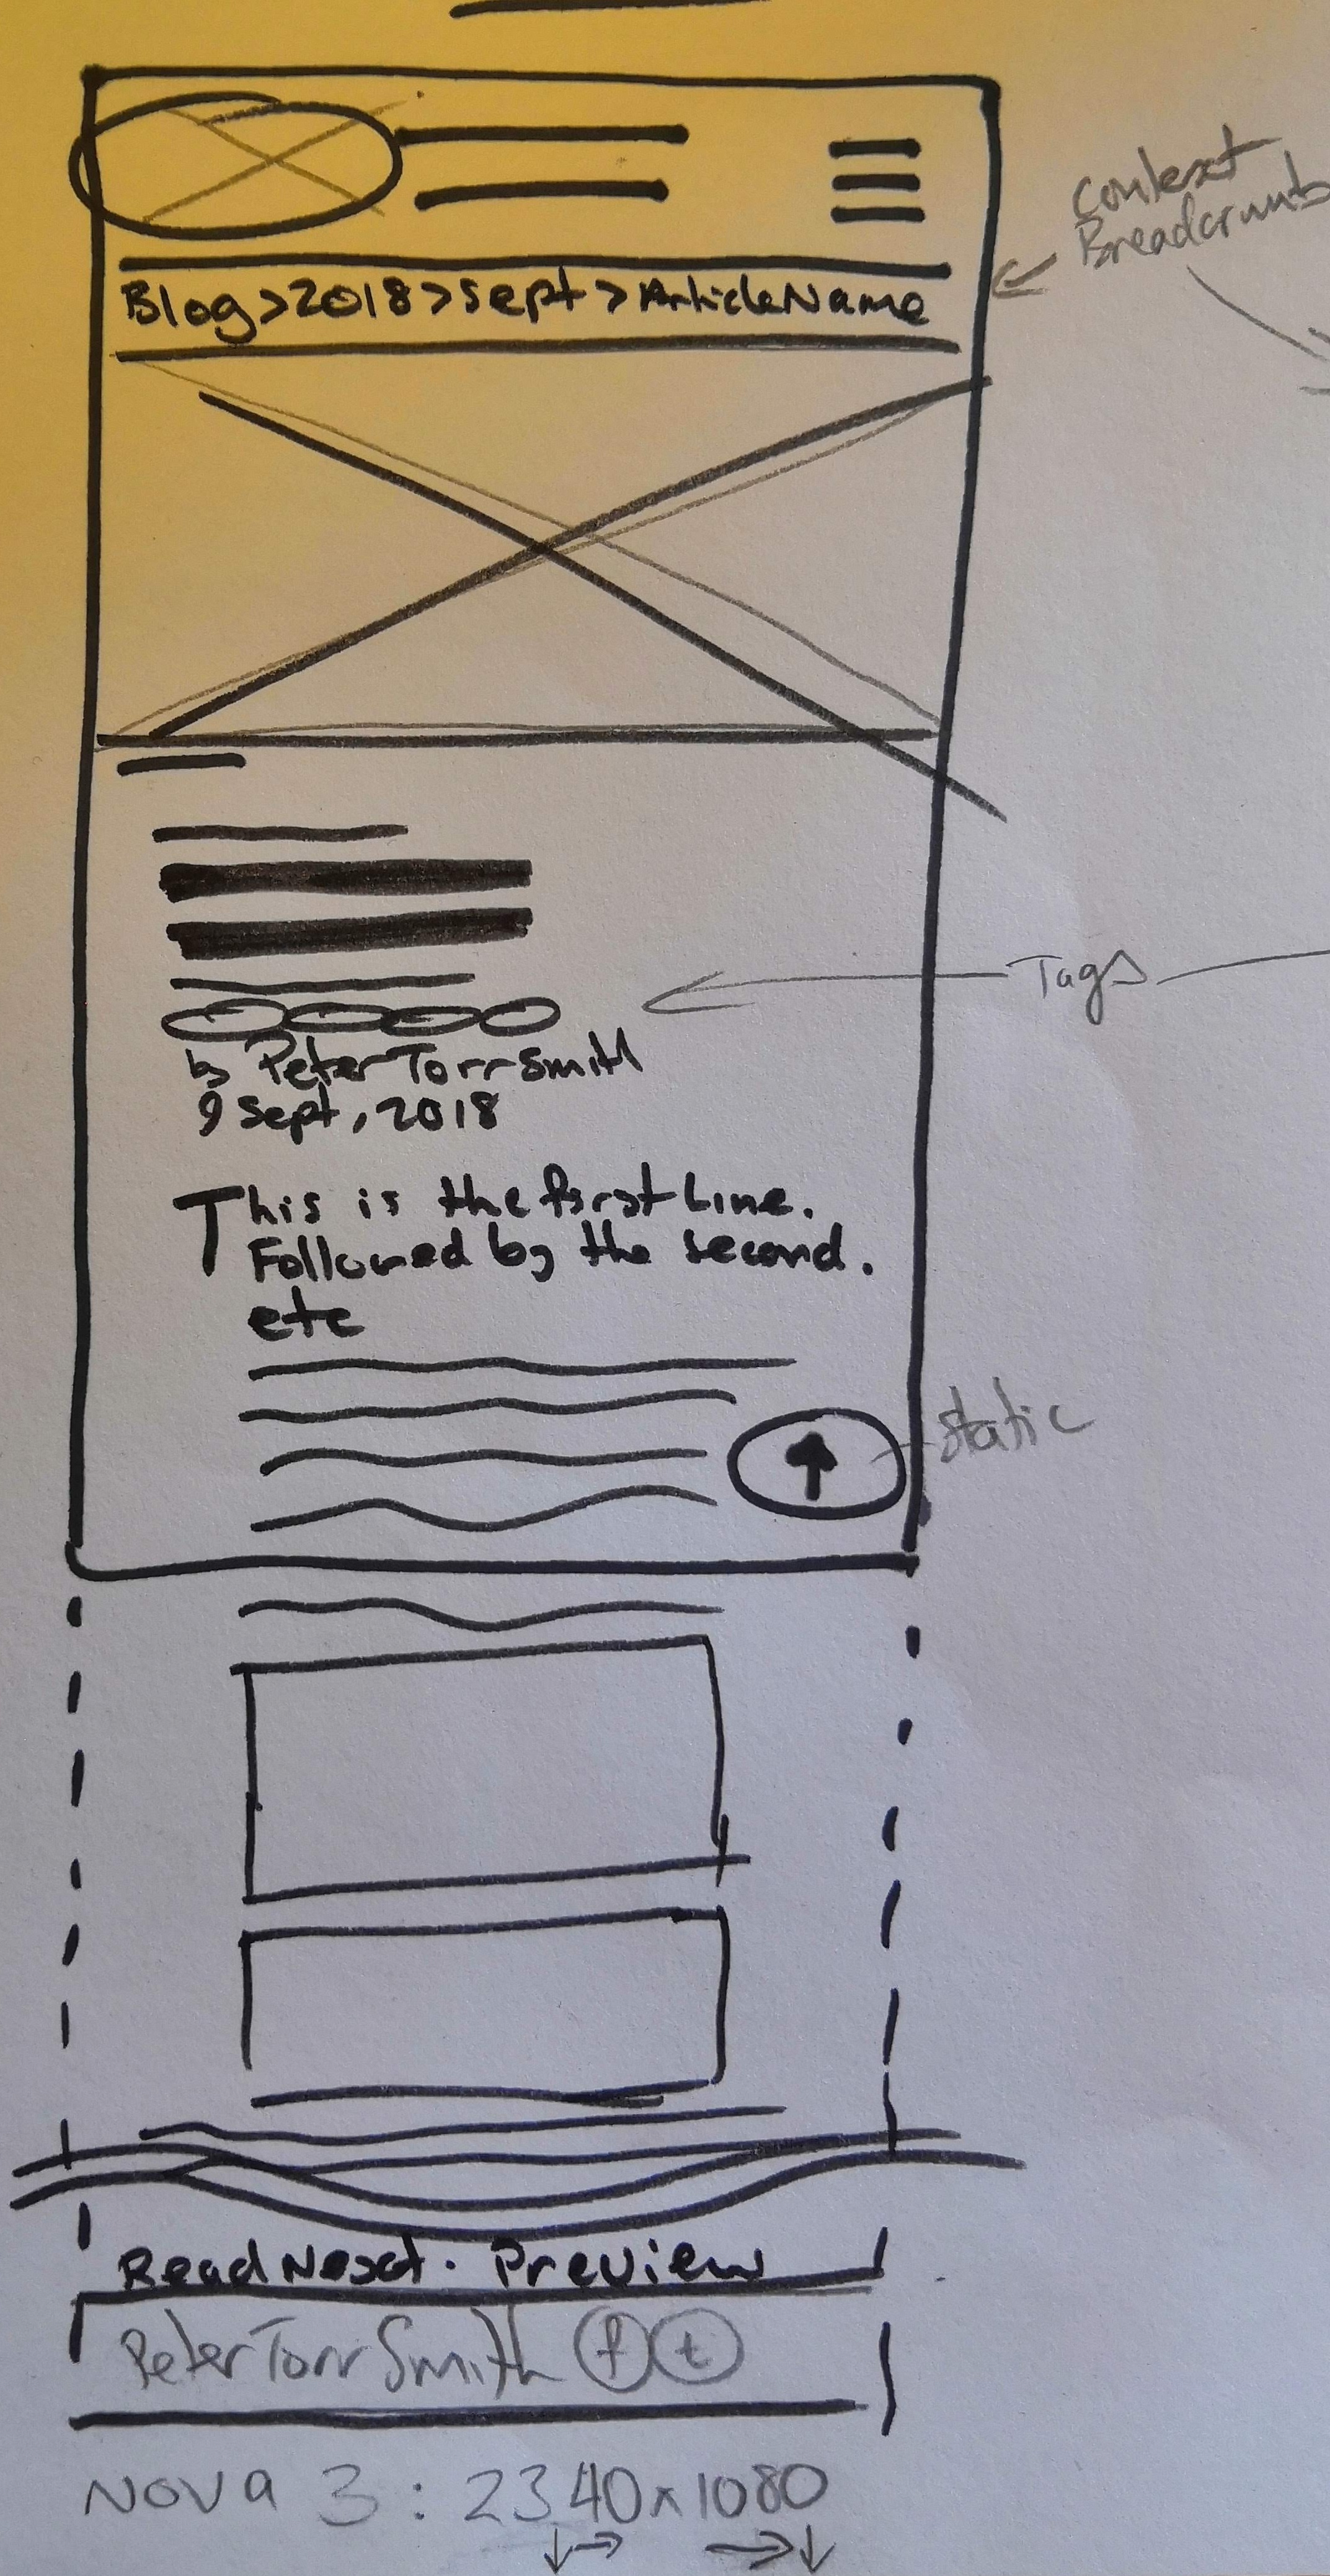 Context
Breadcrumb
Blog>2018>Sept>ArticleName
Tags
by Peter Torr Smith
9 Sept, 2018
This is the first Line.
Followed by the second.
etc
static
Read Next. Preview
Peter Torr Smith f t
Nova 3 : 2340x1080